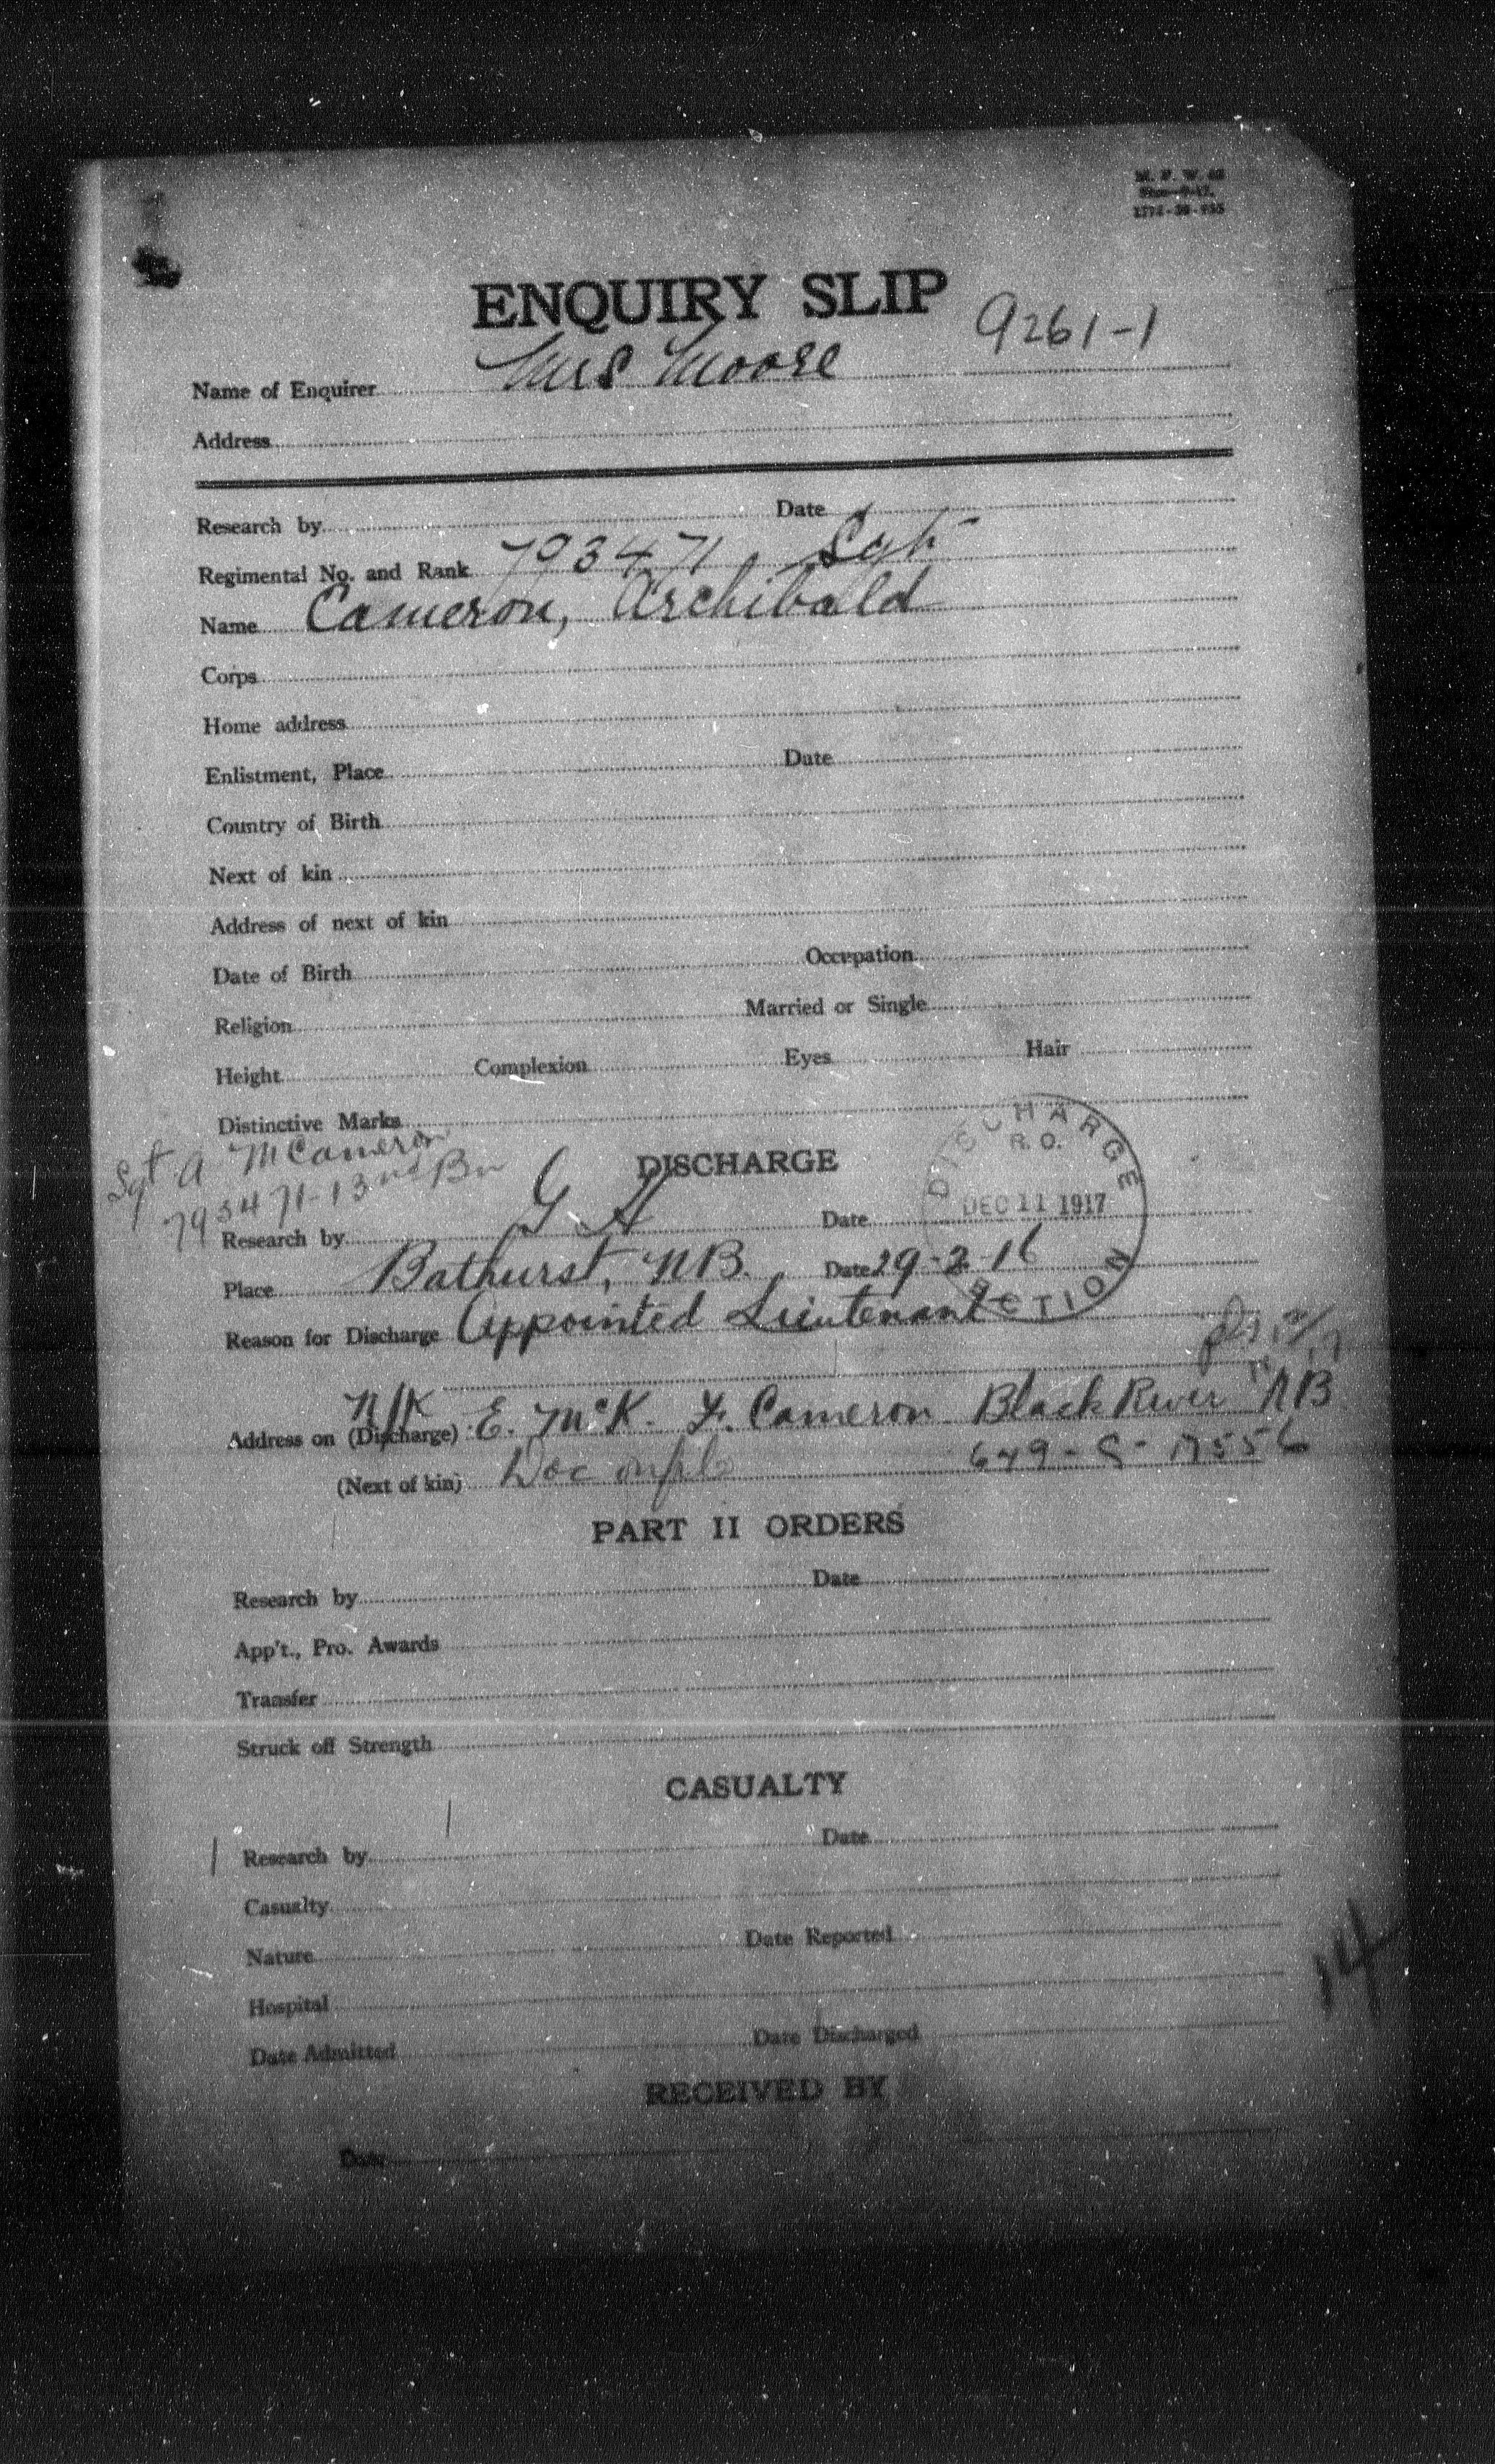 M. F. W. 
ENQUIRY SLIP
9261-1
Name of Enquirer Mrs Moore
Address
Research by Date
Regimental No. and Rank 793471 Sgt
Name Cameron, Archibald
Corps
Home address
Enlistment, Place Date
Country of Birth
Next of kin
Address of next of kin
Date of Birth Occupation
Religion Married or Single
Height Complexion Eyes Hair
Distinctive Marks
Sgt A M Cameron
793471-13 Bn
DISCHARGE
DISCHARGE R. O. DEC 11 1917 SECTION
Research by G H Date
Place Bathurst, NB. Date 29-2-16
Reason for Discharge Appointed Lieutenant
N/K
Address on (Discharge) E. McK. F. Cameron Black River NB
(Next of kin) Doc 649-C-17556
PART II ORDERS
Research by Date
App't., Pro. Awards
Transfer
Struck off Strength
CASUALTY
Research by Date
Casualty
Nature Date Reported
Hospital
14
Date Admitted Date Discharged
RECEIVED BY
Date